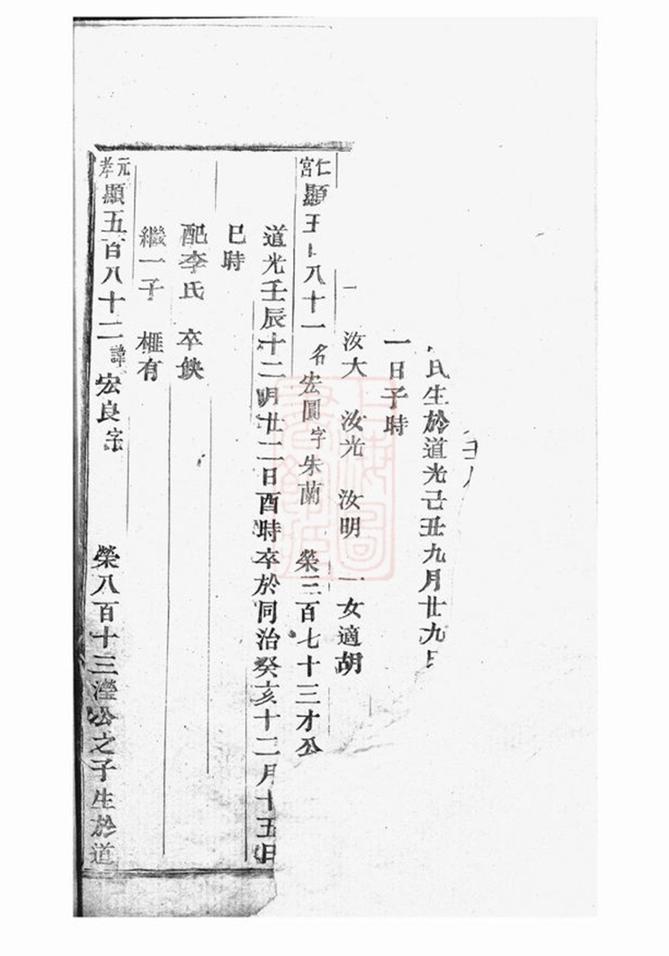 氏生於道光己丑九月廿九日
一日子時
汝大 汝光 汝明 一女適胡
仁宮顯五百八十一名宏圓字朱蘭 榮三百七十三才公
道光壬辰十二月廿二日酉時卒於同治癸亥十二月十五日
巳時
配李氏 卒缺
繼一子 榧有
元孝顯五百八十二諱宏良字 榮八百十三瀅公之子生於道